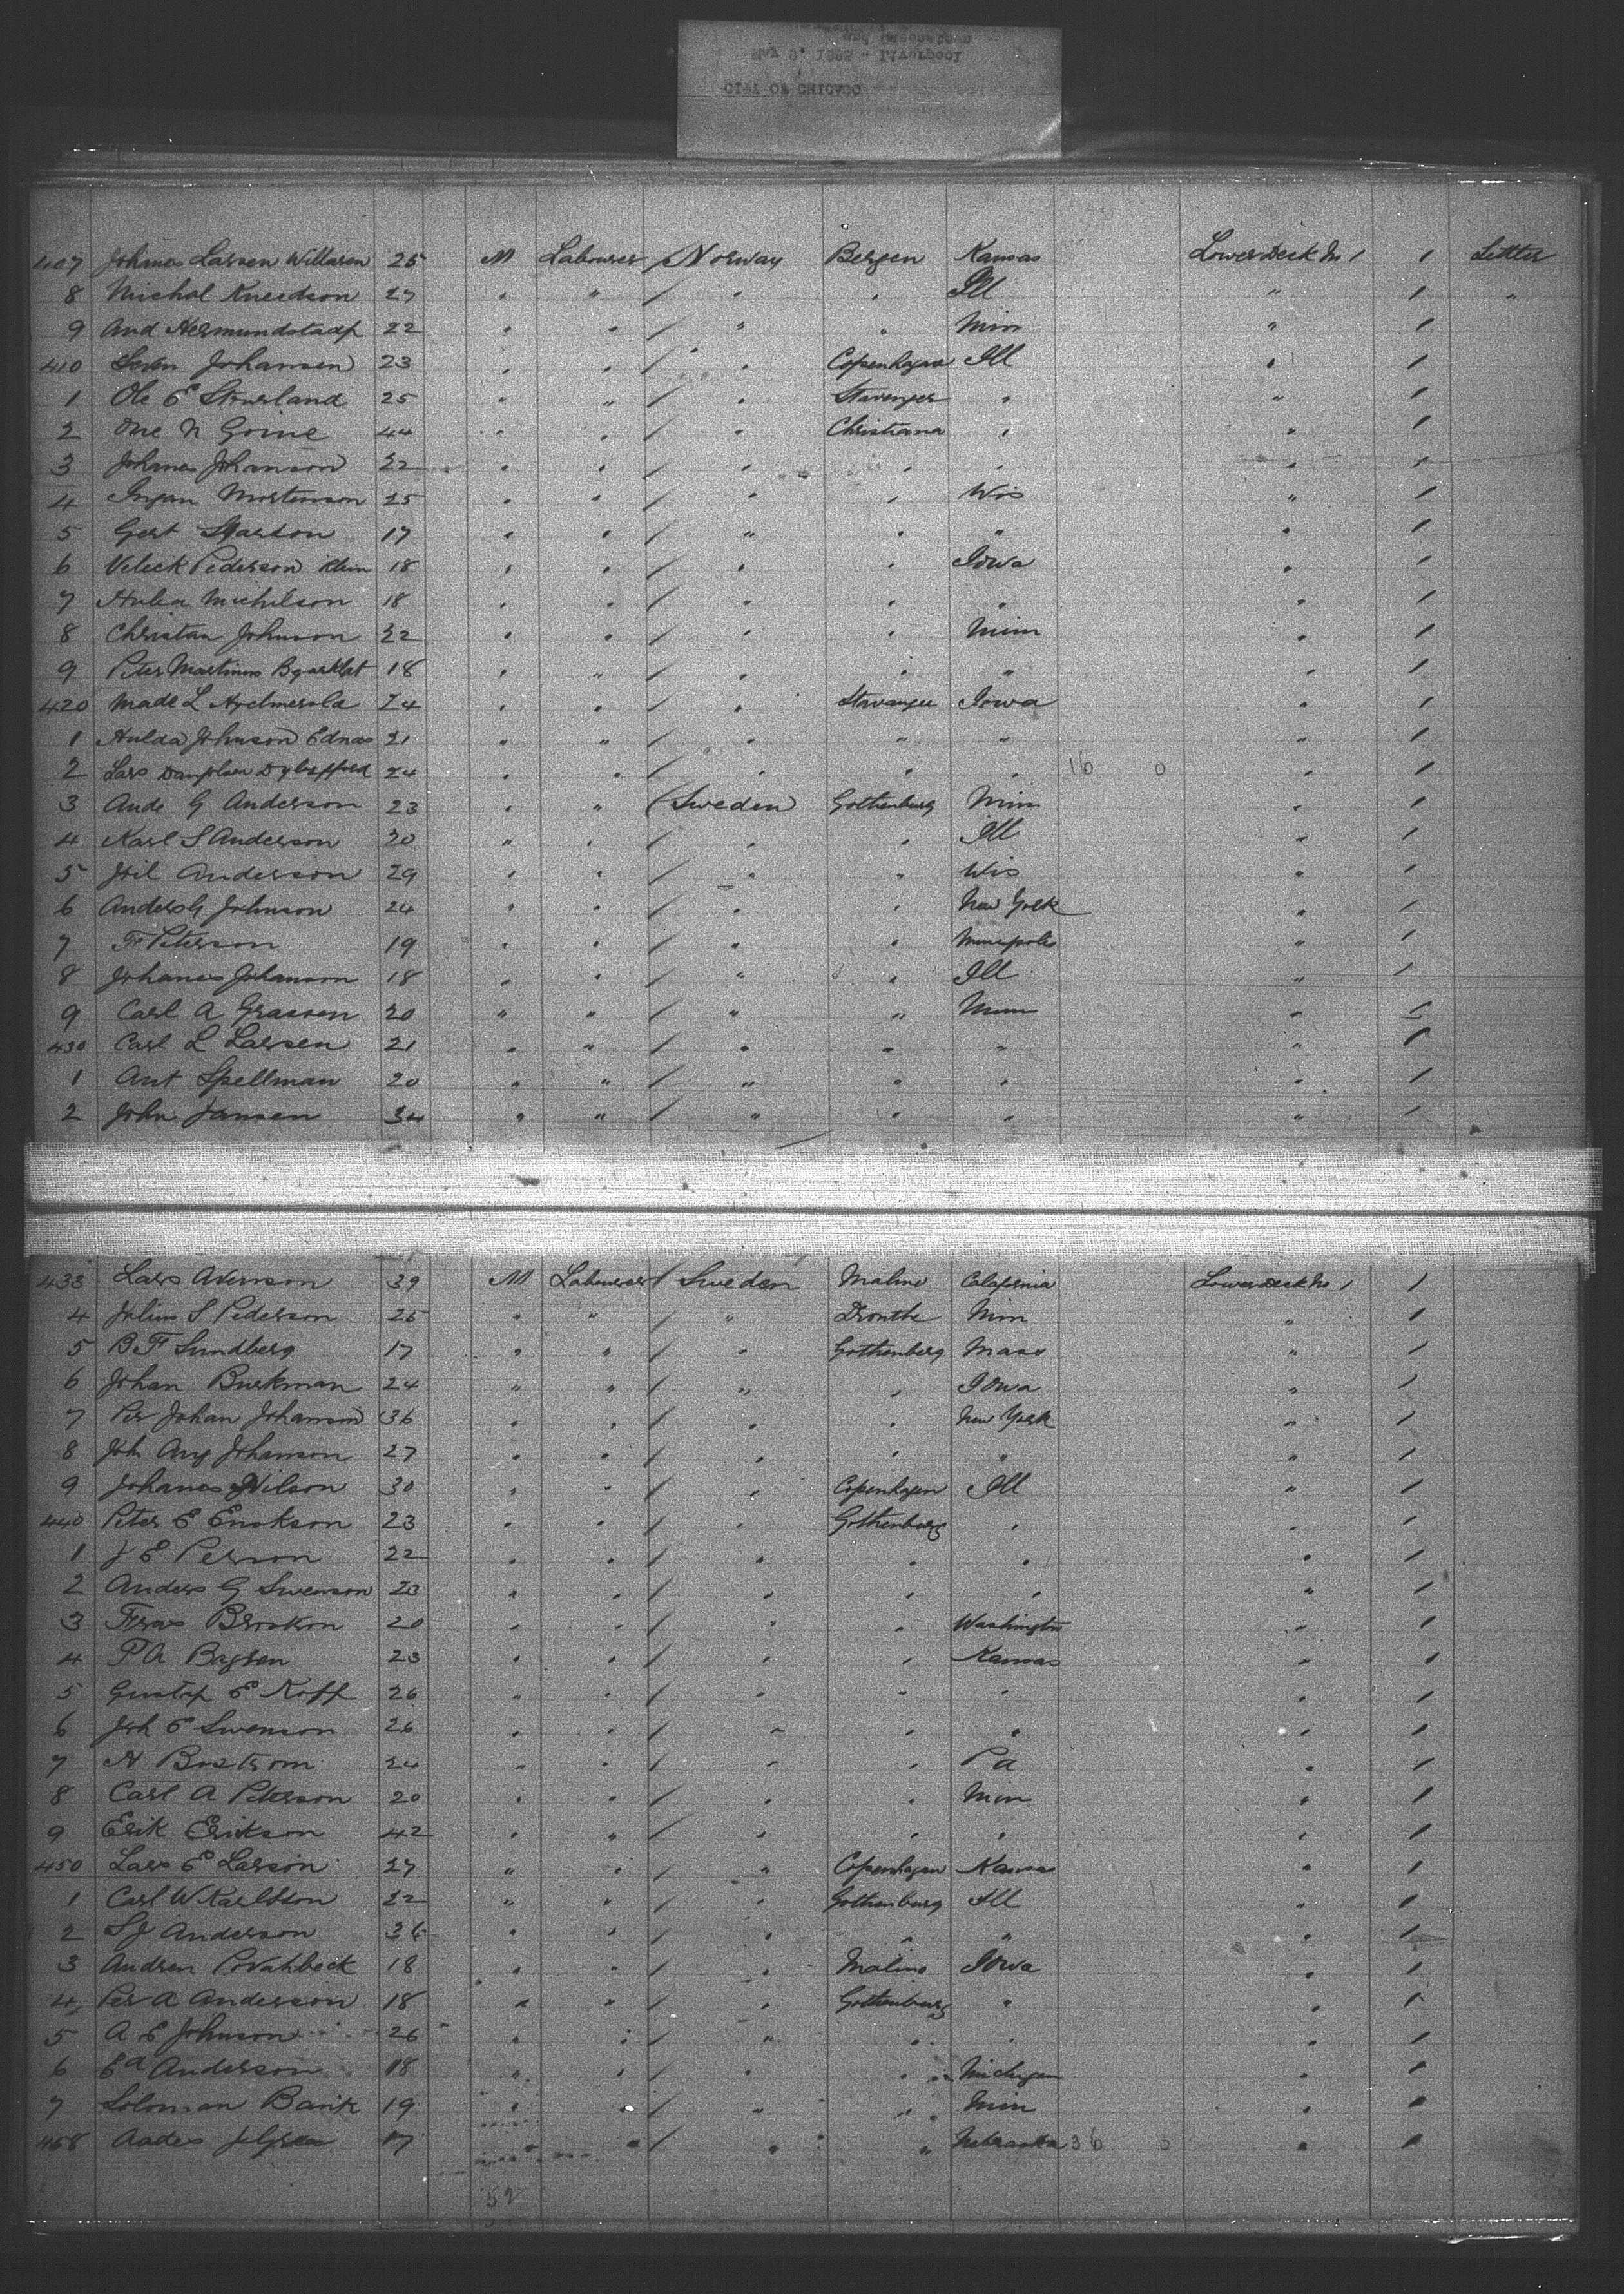 CITY OF CHICAGO
407 Johnes Larsen Willaren 25 M Labourer / Norway Bergen Kansas Lower Deck No 1 1 Settler
8 Michal Kneedson 27 " " / " " Ill " 1 "
9 And Hermundstadf 22 " " / " " Min " 1
410 Seven Johansen 23 " " / " Copenhagen Ill " 1
1 Ole E Stourland 25 " " / " Stavenger " " 1
2 One N Goine 44 " " / " Christiana " " 1
3 Johanes Johanson 22 " " / " " " " 1
4 Ingan Mortinson 25 " " / " " Wis " 1
5 Gert Starson 17 " " / " " " " 1
6 Veleck Pederson Klem 18 " " / " " Iowa " 1
7 Michelson 18 " " / " " " " 1
8 Christan Johnson 22 " " / " " Minn " 1
9 Peter Martinus 18 " " / " " " " 1
420 Made L 24 " " / " Stavanger Iowa " 1
1 Hulda Johnson Ednas 21 " " / " " " " 1
2 Lars 24 " " / " " " 16 0 " 1
3 Ande G Anderson 23 " " / Sweden Gothenburg Minn " 1
4 Karl S Anderson 20 " " / " " Ill " 1
5 Joil Anderson 29 " " / " " Wis " 1
6 Anders G Johnson 24 " " / " " New York " 1
7 F Peterson 19 " " / " " Minepolis " 1
8 Johanes Johanson 18 " " / " " Ill " 1
9 Carl A Grasoen 20 " " / " " Minn " 1
430 Carl L Larsen 21 " " / " " " " 1
1 Ant Spellman 20 " " / " " " " 1
2 John Jansen 34 " " / " " " " 1
433 Lars Avenson 39 M Labourer / Sweden Malmo Calafornia Lower Deck No 1 1
4 Julius S Pederson 25 " " / " Dronthe Minn " 1
5 B F Sundberg 17 " " / " Gothenberg Mass " 1
6 Johan Burkman 24 " " / " " Iowa " 1
7 Per Johan Johanson 36 " " / " " New York " 1
8 Joh Aug Johanson 27 " " / " " " " 1
9 Johanes Nilson 30 " " / " Copenhagen Ill " 1
440 Peter E Enokson 23 " " / " Gothenburg " " 1
1 J E Person 22 " " / " " " " 1
2 Anders G Swenson 23 " " / " " " " 1
3 Fras Brookson 20 " " / " " Washington " 1
4 P A Bagsen 23 " " / " " Kansas " 1
5 Gustaf E Koff 26 " " / " " " " 1
6 Joh E Swenson 26 " " / " " " " 1
7 N Bostrom 24 " " / " " Pa " 1
8 Carl A Peterson 20 " " / " " Min " 1
9 Erik Erikson 42 " " / " " " " 1
450 Lars E Larson 27 " " / " Copenhagen Kansas " 1
1 Carl W Karlsson 22 " " / " Gothenburg Ill " 1
2 S J Anderson 36 " " / " " " " 1
3 Andren 18 " " / " Malmo Iowa " 1
4 Per A Anderson 18 " " / " Gothenburg " " 1
5 A E Johnson 26 " " / " " " " 1
6 E A Anderson 18 " " / " " Michigan " 1
7 Soloman Bank 19 " " / " " Minn " 1
458 Aades 17 " " / " " Nebraska 36 0 " 1
52